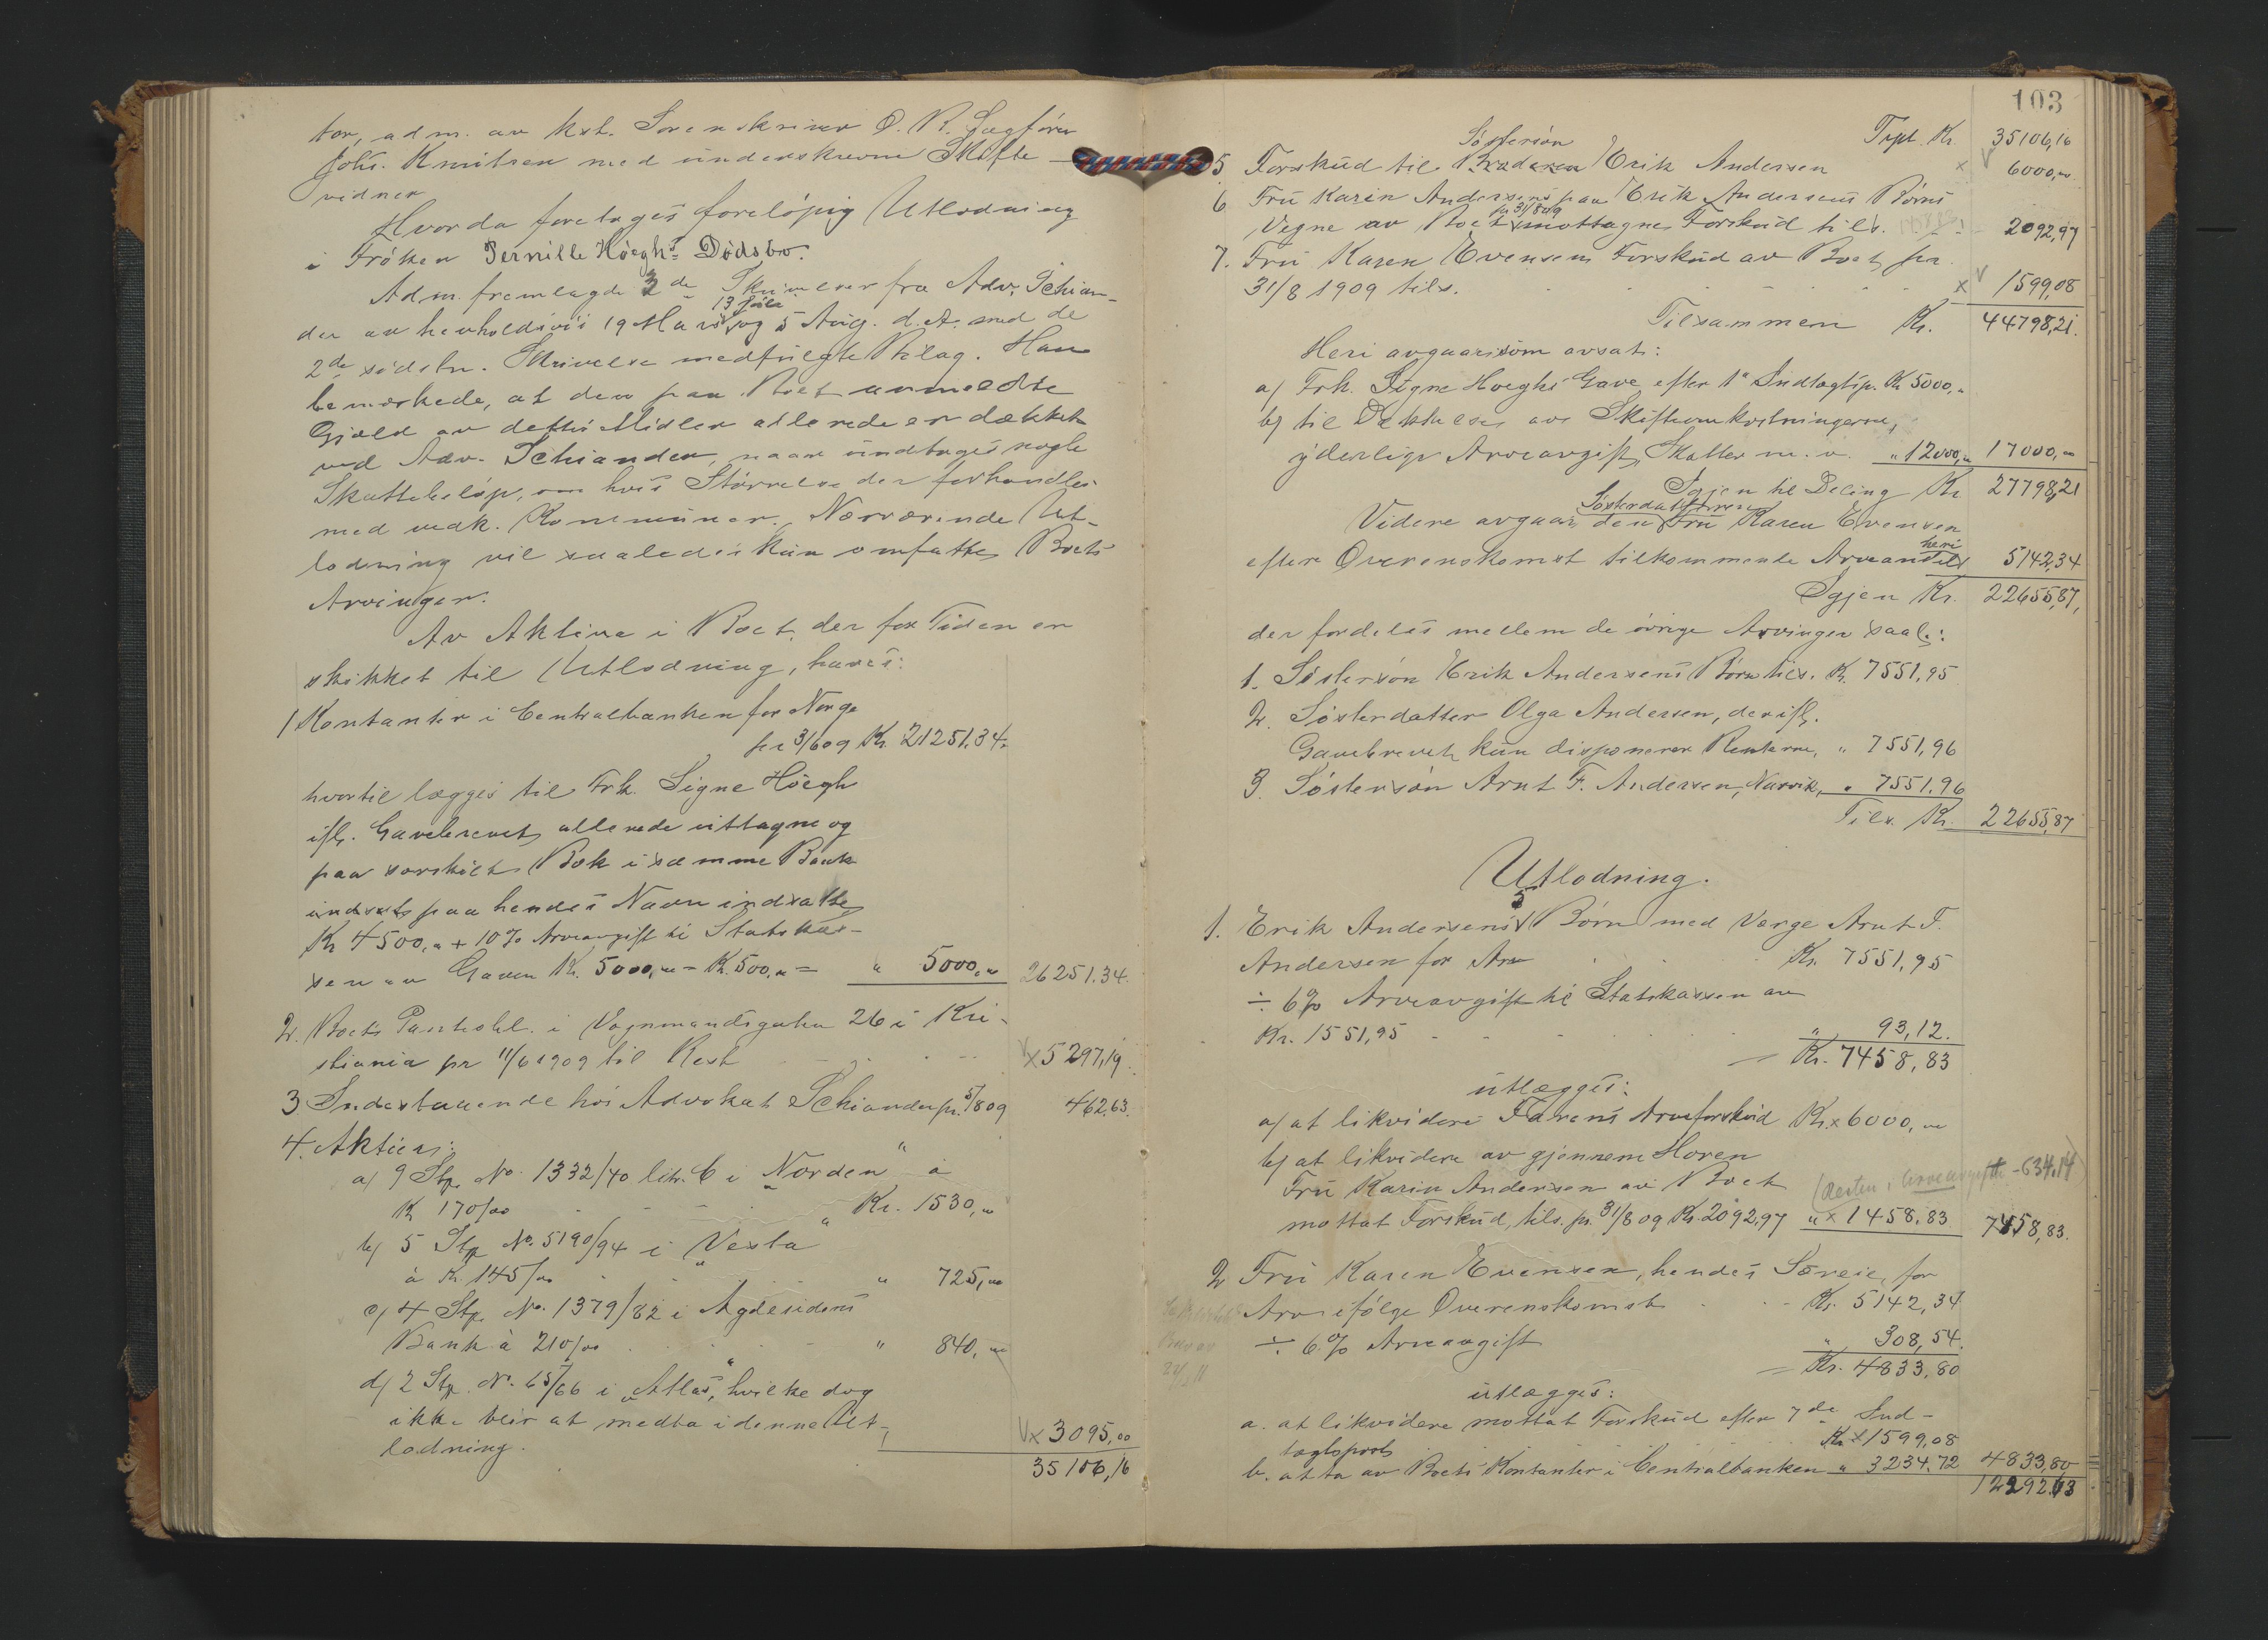 tor, adm. av kst. Sorenskriver O. R. Sagfører
Johs. Knutsen med underskrevne Skifte-
vidner
Hvorda foretages foreløpig Utlodning
i Frøken Pernille Høeghs Dødsbo.
Adm. fremlagde 3de Skrivelser fra Adv. Schian-
der av henholdsvis 19 Mars, 13 Juli og 5 Aug. d. A. med de
2de sidstn. Skrivelse medfulgte Bilag. Han
bemærkede, at den paa Boet anmeldte
Gjæld av dettes Midler allerede er dækket
ved Adv. Schiander, naar undtages nogle
Skattebeløp, om hvis Størrelse der forhandles
med vedk. Kommuner. Nærværende Ut-
lodning vil saaledes kun omfatte Boets
Arvinger.
Av Aktiva i Boet, der for Tiden er
skikket til Utlodning, haves:
1 Kontanter i Centralbanken for Norge
per 3/6 09 Kr. 21251.34.
hvortil lægges til Frk. Signe Høegh
ifl. Gavebrevet allerede uttagne og
paa særskilt Bok i samme Bank
indsat paa hendes Navn indsatte
Kr 4500,00 + 10% Arveavgift til Statskas-
sen av Gaven Kr. 5000,00 = Kr. 500,00 = " 5000,00 26251.34.
2. Boets Panteobl. i Vognmandsgaten 26 i Kri-
stiania pr 11/6 1909 til Rest x 5297,19
3 Indestaaende hos Advokat Schiander pr. 5/8 09 462,63.
4. Aktier:
a) 9 Stk. No. 1332/40 litr. C i "Norden" à
Kr 170/00 Kr. 1530,00
b) 5 Stk No. 5190/94 i "Vesta"
à Kr. 145/00 " 725,00
c) 4 Stk. No. 1379/82 i Agdesidens
Bank à 210/00 " 840,00
d) 2 Stk. No. 65/66 i "Atlas", hvilke dog
ikke blir at medta i denne Ut-
lodning. x 3095,00
35106,16
103
Trpt. Kr. 35106,16
5. Forskud til Søstersøn Broderen Erik Andersen x 6000,00
6 Fru Karin Andersens paa Erik Andersens Børns
Vegne av Boet pr 31/8 09 mottagne Forskud tils. 2092,97
7. Fru Karen Evensens Forskud av Boet per
31/8 1909 tils. x 1599,08
Tilsammen Kr. 44798,21.
Heri avgaar som avsat:
a) Frk. Signe Høeghs Gave efter 1ste Indtægtsp. Kr 5000,00
b) til Dækkelse av Skifteomkostningerne,
yderlige Arveavgift, Skatter m. v. " 12000,00 17000,00
Igjen til Deling Kr 27798,21
Videre avgaar den Søsterdatteren Fru Karen Evensen
efter Overenskomst tilkommende Arveandel heri 5142,34
Igjen Kr. 22655,87,
der fordeles mellem de øvrige Arvinger saal.:
1. Søstersøn Erik Andersens Børn tils. Kr. 7551,95
2. Søsterdatter Olga Andersen, der ifl.
Gavebrevet kun disponerer Renterne, " 7551,96
3. Søstersøn Arnt F. Andersen, Narvik, " 7551,96
Tils. Kr. 22655,87
Utlodning.
1. Erik Andersens 5 Børn med Værge Arnt F.
Andersen for Arv Kr. 7551,95
÷ 6% Arveavgift til Statskassen av
Kr. 1551,95 " 93,12.
= Kr. 7458,83
utlægges:
a) at likvidere Farens Arveforskud Kr. x 6000,00
b) at likvidere av gjennem Moren
Fru Karin Andersen av Boet (Resten i Arveavgift - 634,14)
mottat Forskud, tils. pr. 31/8 09 Kr. 2092,97 " x 1458,83 7458,83.
2 Fru Karen Evensen, hendes Særeie, for
Arv ifølge Overenskomst Kr. 5142,34
÷ 6% Arveavgift " 308,54.
= Kr. 4833,80
utlægges:
a. at likvidere mottat Forskud efter 7de Ind-
tægtspost Kr x 1599,08
b. at ta av Boets Kontanter i Centralbanken " 3234,72 4833,80
12292.63